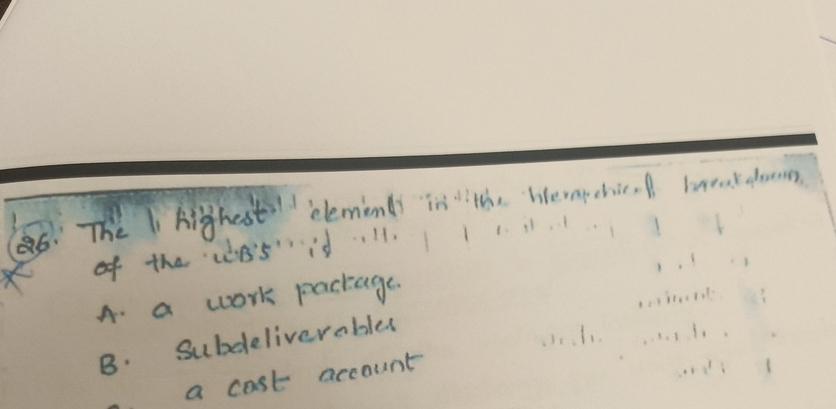 26. The highest element in the hierarchical breakdown
of the WBS is
A. a work package.
B. Subdeliverables
a cost account